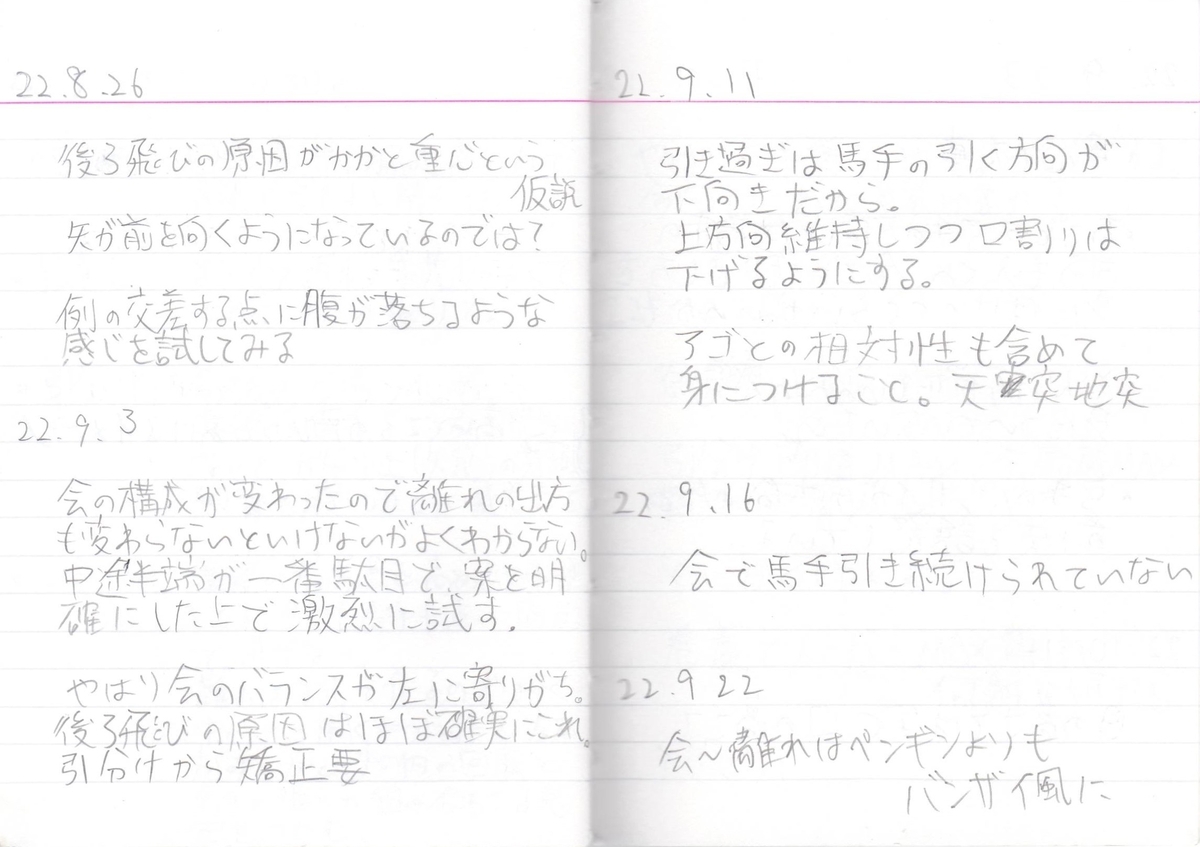 22.8.26
後ろ飛びの原因がかかと重心という
仮説
矢が前を向くようになっているのでは?
例の交差する点に腹が落ちるような
感じを試してみる
22.9.3
会の構成が変わったので離れの出方
も変わらないといけないがよくわからない。
中途半端が一番駄目で、案を明
確にした上で激烈に試す.
やはり会のバランスが左に寄りがち。
後ろ飛びの原因はほぼ確実にこれ。
引分けから矯正要
22.9.11
引き過ぎは馬手の引く方向が
下向きだから。
上方向維持しつつ口割りは
下げるようにする。
アゴとの相対性も含めて
身につけること。天突地突
22.9.16
会で馬手引き続けられていない
22.9 22
会~離れはペンギンよりも
バンザイ風に